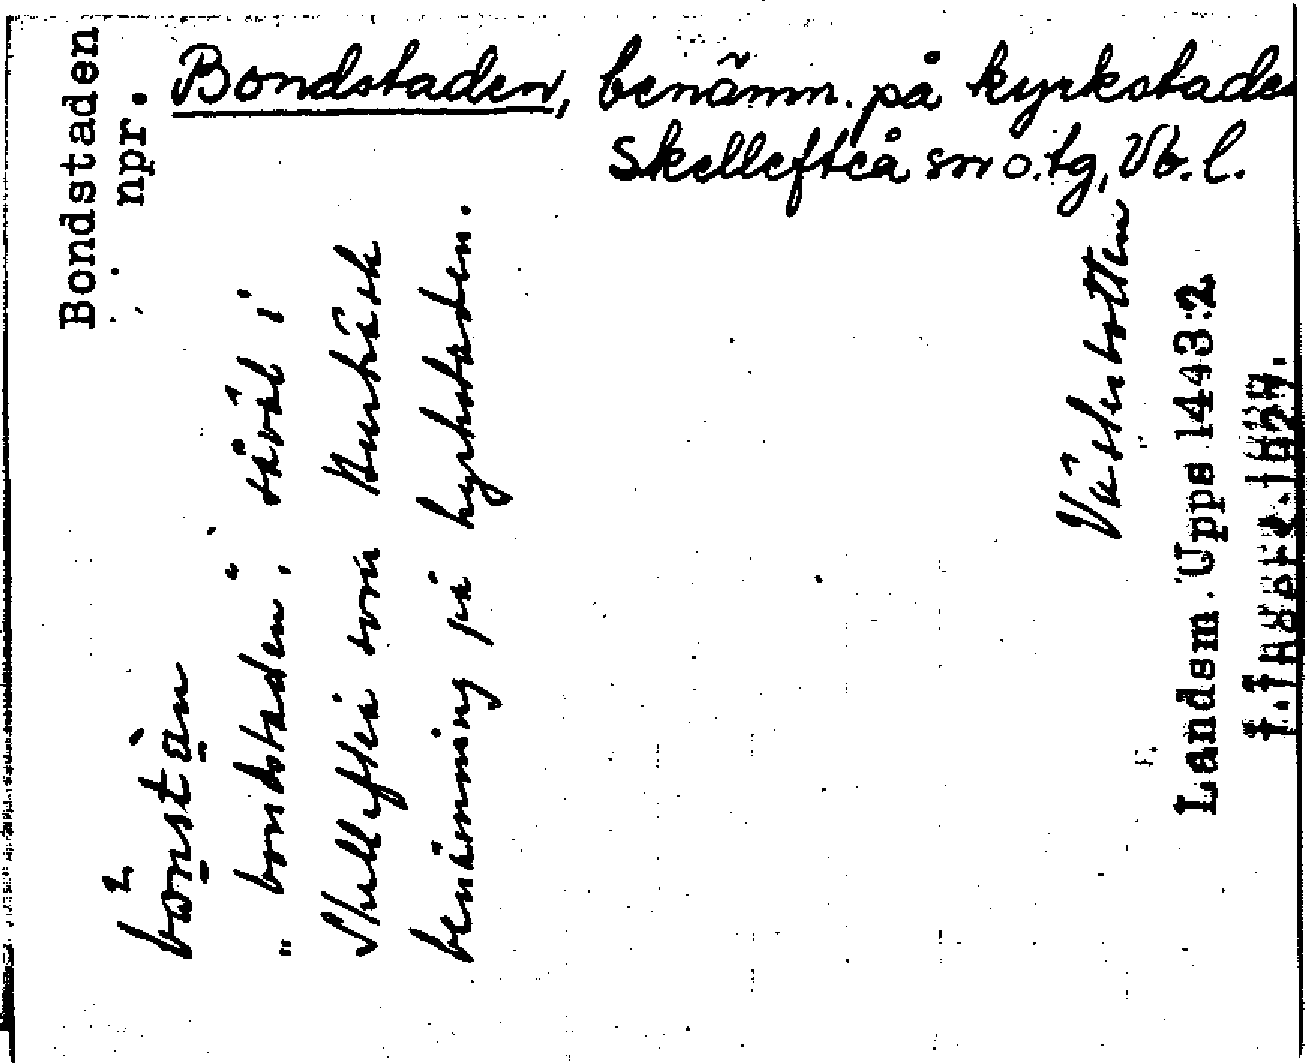 Bondstaden, benämn. på kyrkstaden
Skellefteå sn o. tg, Vb. l.
Bondstaden
npr.
"bondstaden", såväl i
Skellefteå som Burträsk
benämning på kyrkstaden.
Västerbotten
Landsm. Upps 1443:2